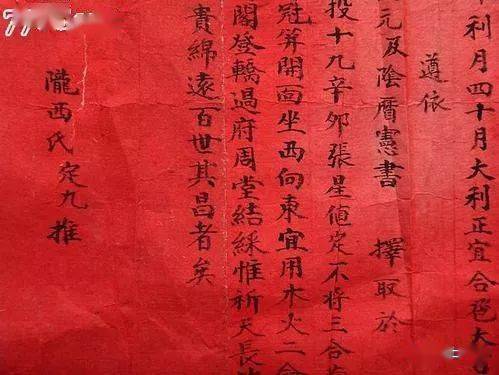 利月四十月大利正宜合卺大
遵依
元及陰曆憲書 擇取於
投十九辛卯張星值定不將三合
冠笄開面坐西向東宜用木火二
閣登轎過府周堂結綵惟祈天長
貴綿遠百世其昌者矣
隴西氏定九推